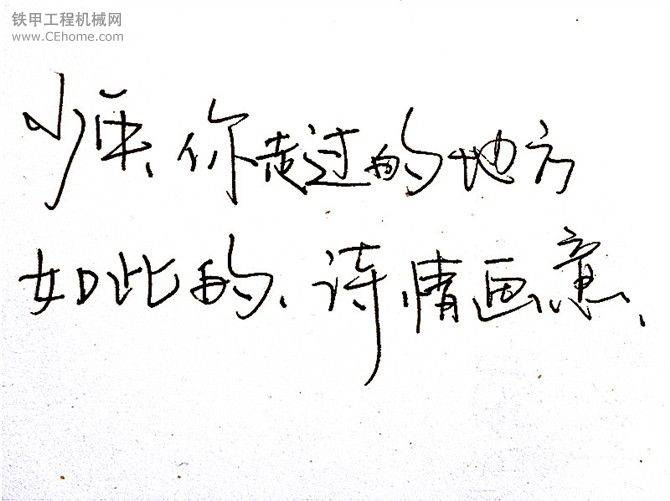 铁甲工程机械网
www.CEhome.com
你走过的地方
如此的、诗情画意、